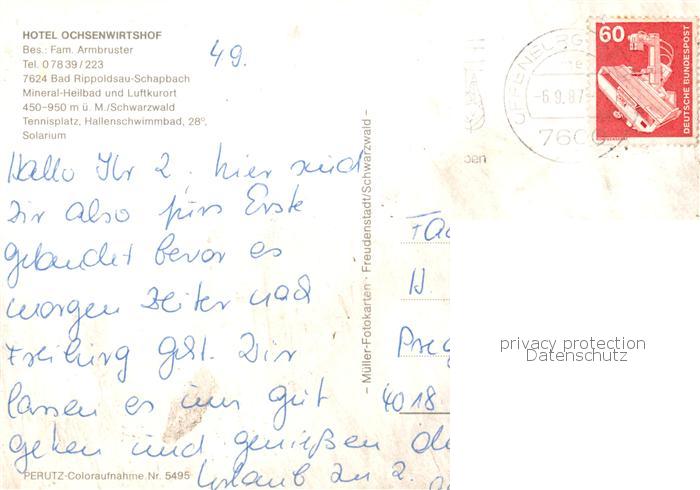 HOTEL OCHSENWIRTSHOF
Bes.: Fam. Armbruster
Tel. 0 78 39 / 223
7624 Bad Rippoldsau-Schapbach
Mineral-Heilbad und Luftkurort
450–950 m ü. M./Schwarzwald
Tennisplatz, Hallenschwimmbad, 28°,
Solarium
49.
Hallo Ihr 2, hier sind
wir also fürs Erste
gelandet bevor es
morgen weiter nach
Freiburg geht. Wir
lassen es uns gut
gehen und genießen de
Urlaub zu 2.
PERUTZ-Coloraufnahme Nr. 5495
– Müller-Fotokarten · Freudenstadt/Schwarzwald –
OFFENBURG
-6.9.87
7600
ben
60
DEUTSCHE BUNDESPOST
Fa
H.
4018
privacy protection
Datenschutz